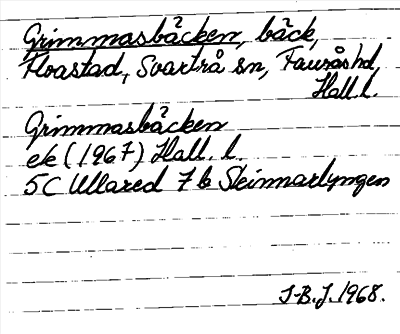 Grimmasbäcken, bäck,
Floastad, Svartrå sn, Faurås hd,
Hall. l.
Grimmasbäcken
ek (1967) Hall. l.
5C Ullared 7 b Steinmarlyngen
J-B.J. 1968.